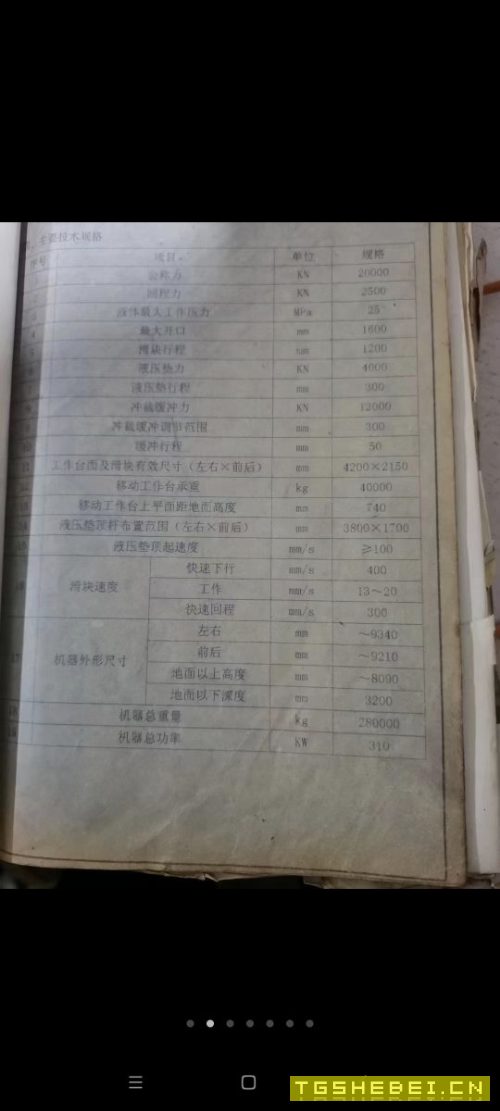 主要技术规格
序号 项目 单位 规格
公称力 KN 20000
回程力 KN 2500
液体最大工作压力 MPa 25
4 最大开口 mm 1600
滑块行程 mm 1200
液压垫力 KN 4000
液压垫行程 mm 300
冲裁缓冲力 KN 12000
冲裁缓冲调节范围 mm 300
10 缓冲行程 mm 50
11 工作台面及滑块有效尺寸(左右×前后) mm 4200×2150
移动工作台承重 kg 40000
移动工作台上平面距地面高度 mm 740
液压垫顶杆布置范围(左右×前后) mm 3800×1700
液压垫顶起速度 mm/s ≥100
滑块速度 快速下行 mm/s 400
工作 mm/s 13~20
快速回程 mm/s 300
机器外形尺寸 左右 mm ~9340
前后 mm ~9210
地面以上高度 mm ~8090
地面以下深度 mm 3200
机器总重量 kg 280000
机器总功率 KW 310
TGSHEBEI.CN